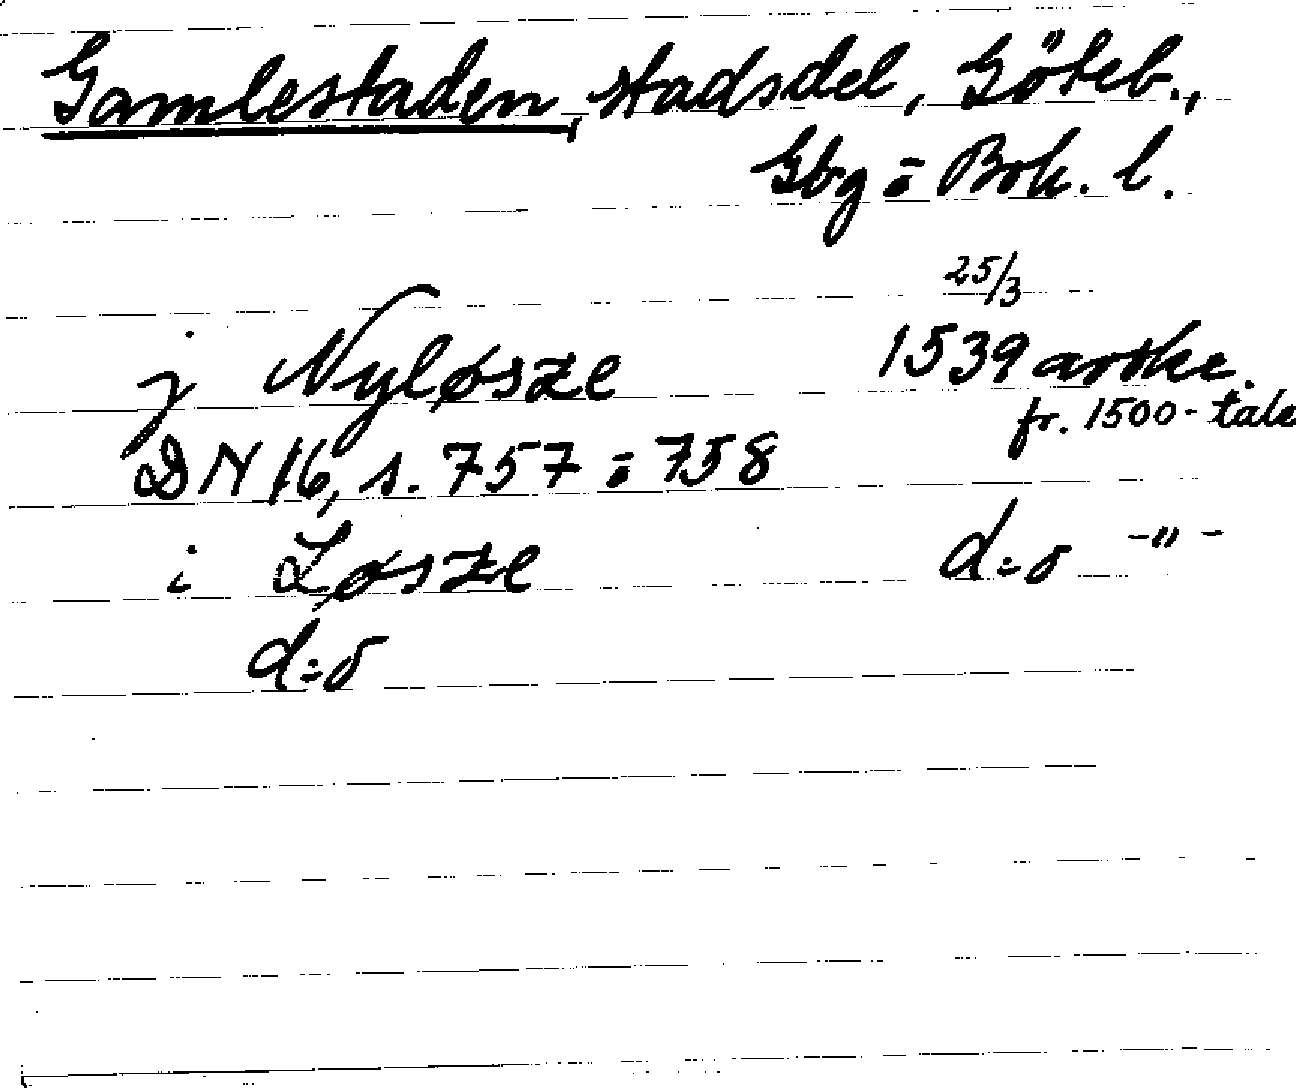 Gamlestaden, stadsdel, Göteb.,
Gbg = Boh. l.
25/3
j Nyløsze 1539 avskr.
fr. 1500-tale
DN 16, s. 757 = 758
i Løsze d:o -"-
d:o